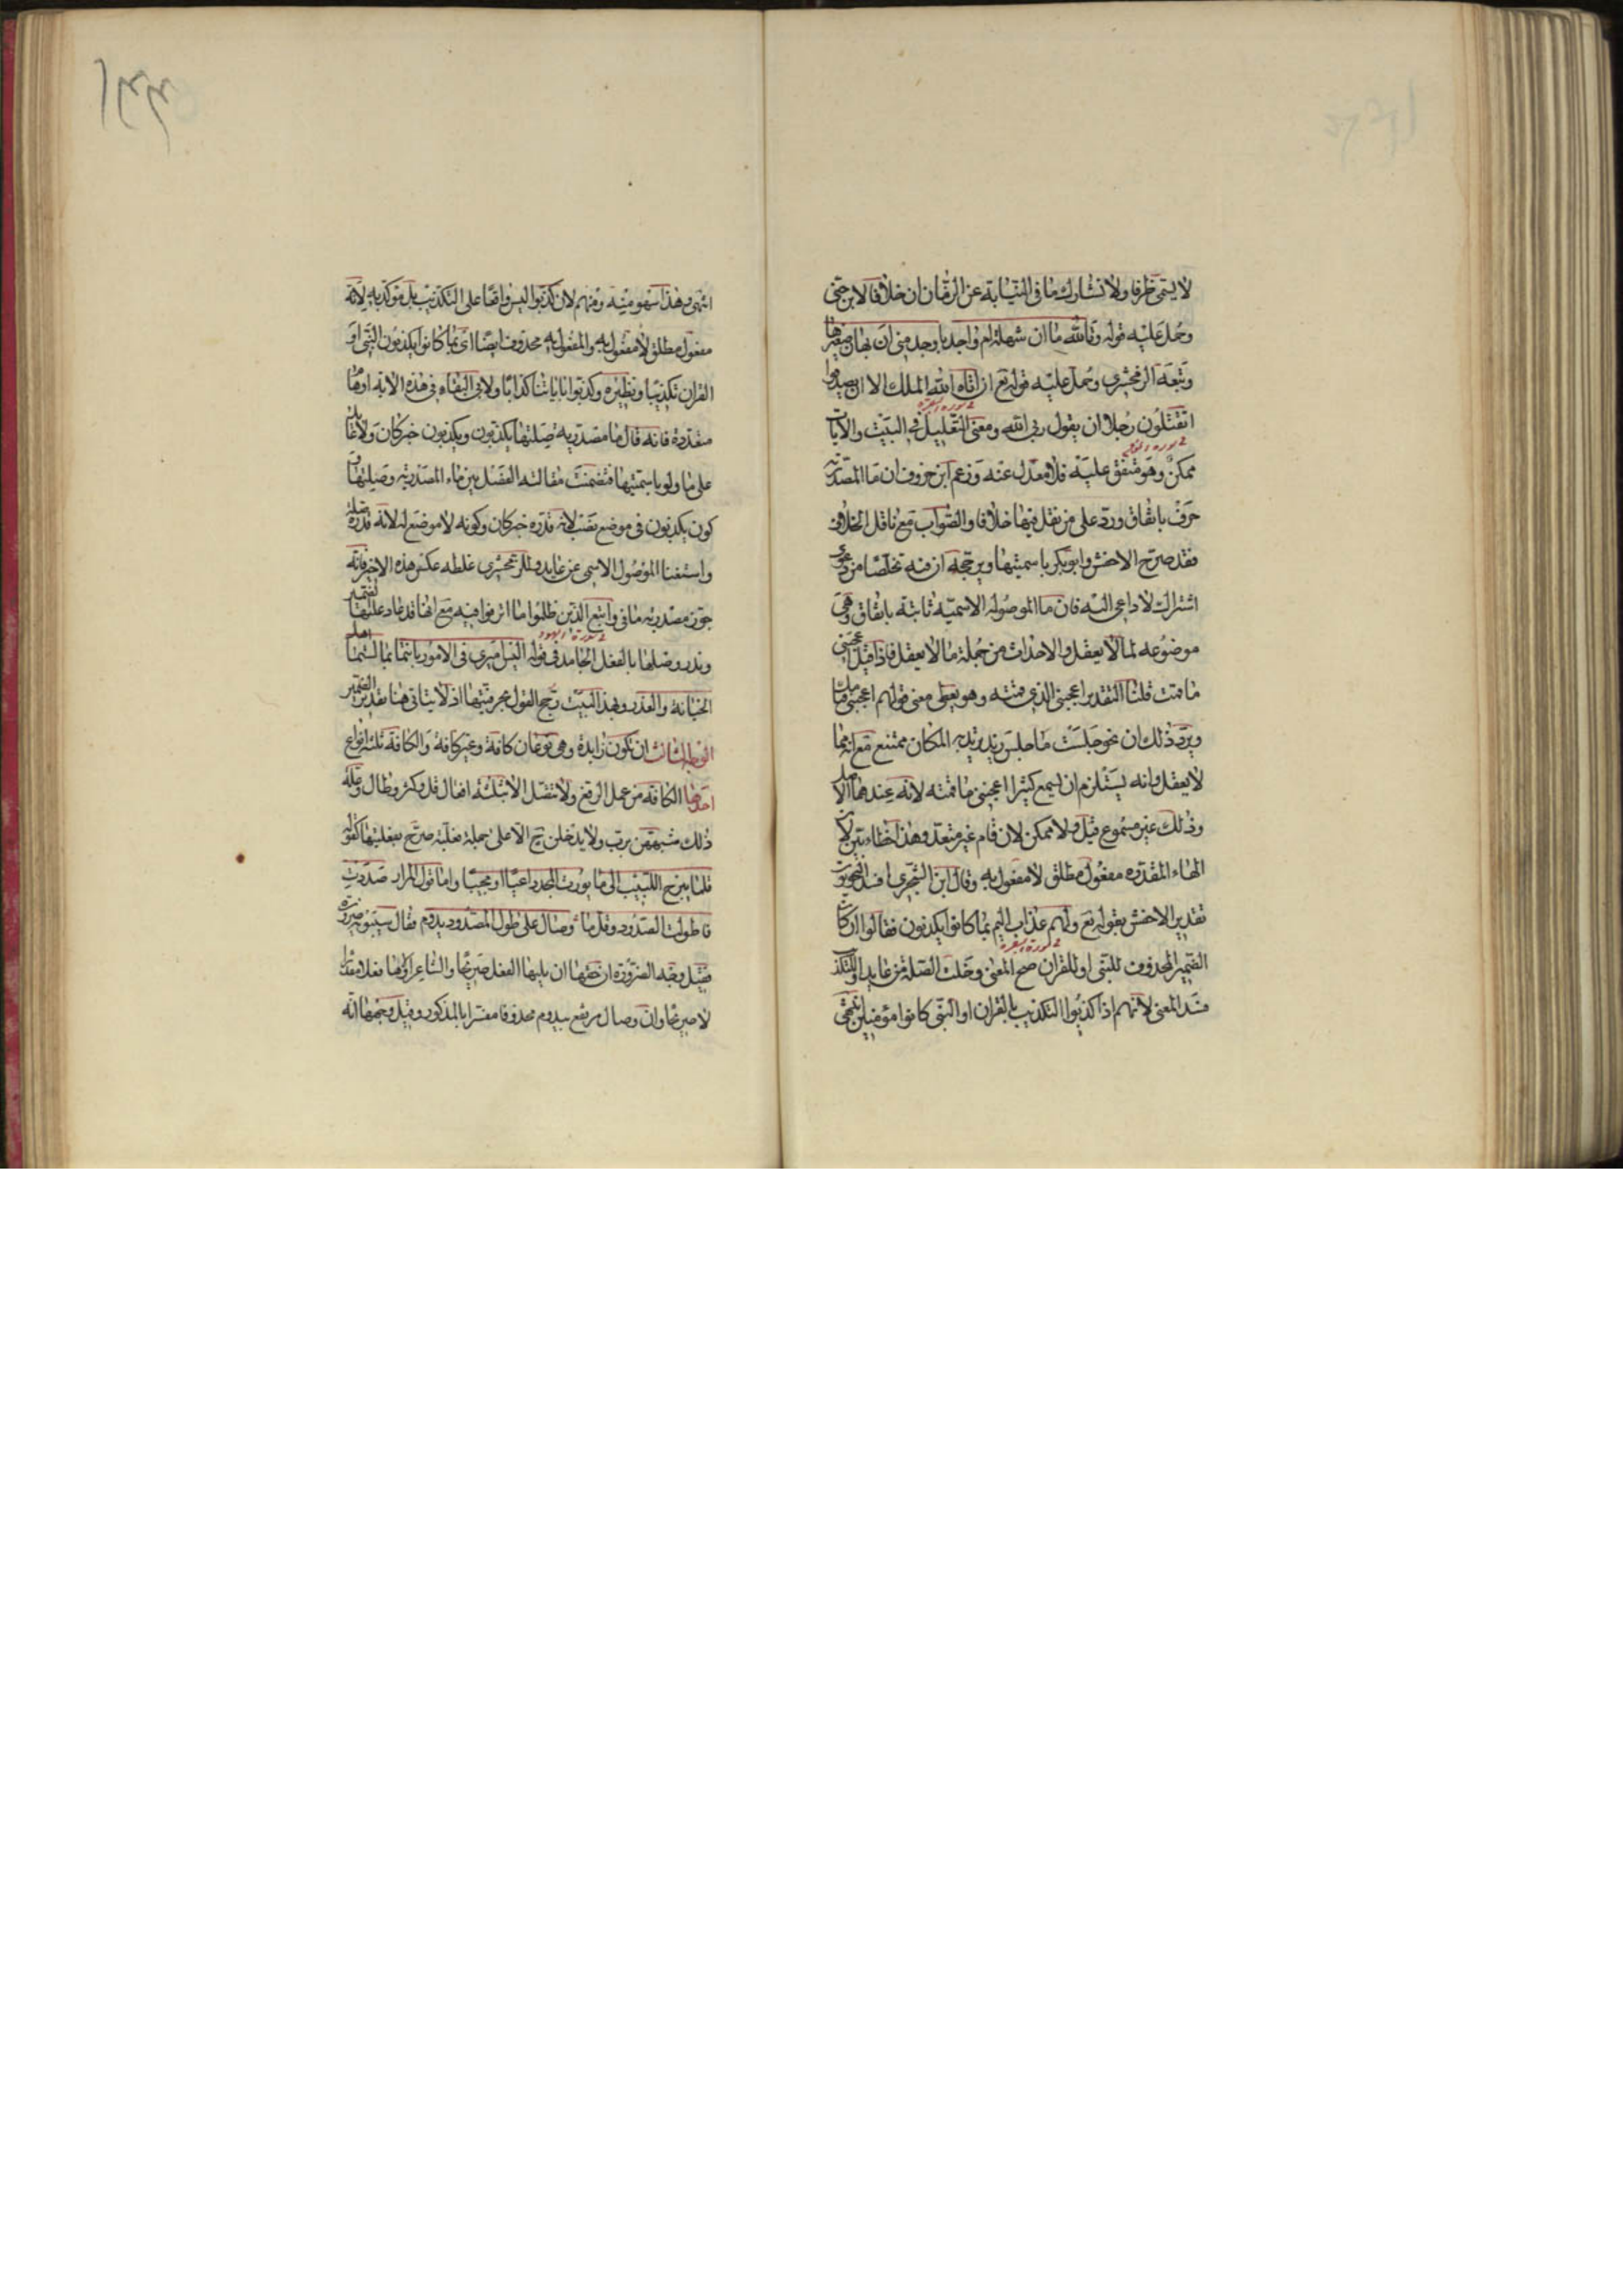 لا يسمى ظرفا ولا تشارك ما في النيابة عن الزمان ان خلافا لابن جنى
وحمل عليه قوله وتالله ما ان شهلة ام واحد باوجد منى ان يهان صغيرها
وتبعه الزمخشرى وحمل عليه قوله تع ان اتاه الله الملك الا ان يصدقوا
اتقتلون رجلا ان يقول ربى الله ومعنى التعليل فى البيت والآيات
ممكن وهو متفق عليه فلا معدل عنه وزعم ابن خروف ان ما المصدرية
حرف باتفاق ورد على من نقل فيها خلافا والصواب مع ناقل الخلاف
فقد صرح الاخفش وابو بكر باسميتها ويرجحه ان فيه تخلصا من دعوى
اشتراك لا داعى اليه فان ما الموصولة الاسمية ثابتة باتفاق وهى
موضوعه لما لا يعقل والاحداث من جملة ما لا يعقل فاذا قيل اعجبنى
ما قمت قلنا التقدير اعجبنى الذى قمته وهو يعطى معنى قولهم اعجبنى قيامك
ويرد ذلك ان نحو جلست ما جلس زيد يريد به المكان ممتنع مع انه مما
لا يعقل وانه يستلزم ان يسمع كثيرا اعجبنى ما قمته لانه عندهما الاصل
وذلك غير مسموع قيل ولا ممكن لان قام غير متعد وهذا خطاء بين لان
الهاء المقدره مفعول مطلق لا مفعول به وقال ابن الشجرى افسد النحويون
تقدير الاخفش بقوله تع ولهم عذاب اليم بما كانوا يكذبون فقالوا ان كان
الضمير المحذوف للنبى او للقران صح المعنى وخلت الصلة من عايد او للتكذيب
فسد المعنى لانهم اذا كذبوا التكذيب بالقران او النبى كانوا مؤمنين انتهى
انتهى وهذا سهو منه ومنهم لان كذبوا ليس واقعا على التكذيب بل مؤكد به لانه
مفعول مطلق لا مفعول به والمفعول به محذوف ايضا اى بما كانوا يكذبون النبى او
القران تكذيبا ونظيره وكذبوا باياتنا كذابا ولابى البقاء فى هذه الآية اوهام
متعددة فانه قال ما مصدرية صلتها يكذبون ويكذبون خبر كان ولا عايد
على ما ولو باسميتها فتضمنت مقالته الفصل بين ماء المصدرية وصلتها و
كون يكذبون فى موضع نصب لانه قدره خبر كان وكونه لا موضع له لانه قدره صلة
واستغنا الموصول الاسمى عن عايد وللزمخشرى غلطه عكس هذه الاخير فانه
جوز مصدريه ما فى واتبع الذين ظلموا ما اترفوا فيه مع انها قد عاد عليها الضمير
وندر وصلها بالفعل الجامد فى قوله اليس اميرى فى الامور بانتما بما لستما اهل
الخيانة والغدر وبهذا البيت رجح القول بحرفيتها اذ لا يتاتى هنا تقدير الضمير
الوجه الثالث ان تكون زايدة وهى نوعان كافة وغير كافة والكافة ثلثة انواع
احدها الكافه من عمل الرفع ولا تتصل الا بثلثة افعال قل وكثر وطال وعلة
ذلك شبههن برب ولا يدخلن ح الا على جملة فعلية صرح بفعليتها كقوله
قلما يبرح اللبيب الى ما يورث المجد داعيا او مجيبا واما قول المرار صددت
فاطولت الصدود وقلما وصال على طول الصدود يدوم فقال سيبويه ضرورة
فقيل وجه الضرورة ان حقها ان يليها الفعل صريحا والشاعر اولاها فعلا مقدرا
لا صريحا وان وصال مرتفع بيدوم محذوفا مفسرا بالمذكور وقيل وجهها انه